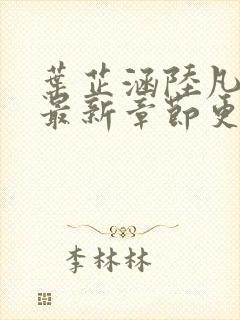 葉芷涵陸凡
最新章節更
李林林